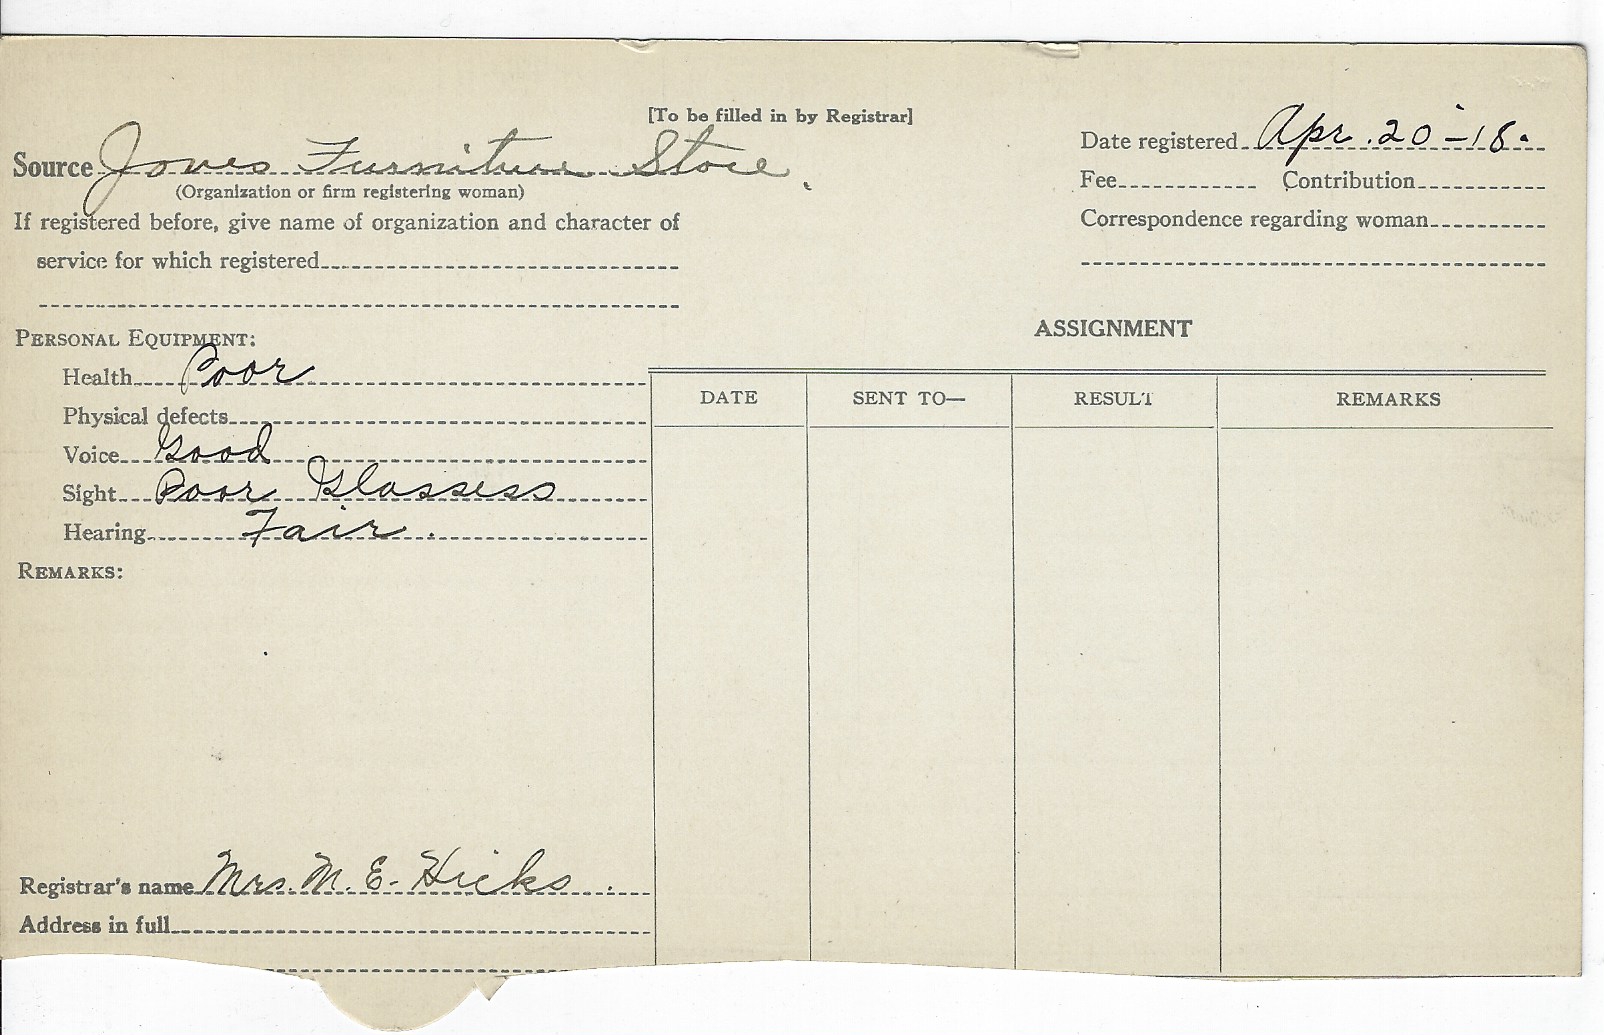 [To be filled in by Registrar]
Source Jones Furniture Store.
(Organization or firm registering woman)
If registered before, give name of organization and character of
service for which registered
Date registered Apr. 20-18.
Fee Contribution
Correspondence regarding woman
PERSONAL EQUIPMENT:
Health Poor
Physical defects
Voice Good
Sight Poor Glassess
Hearing Fair.
REMARKS:
Registrar's name Mrs. M. E. Hicks.
Address in full
ASSIGNMENT
DATE SENT TO— RESULT REMARKS